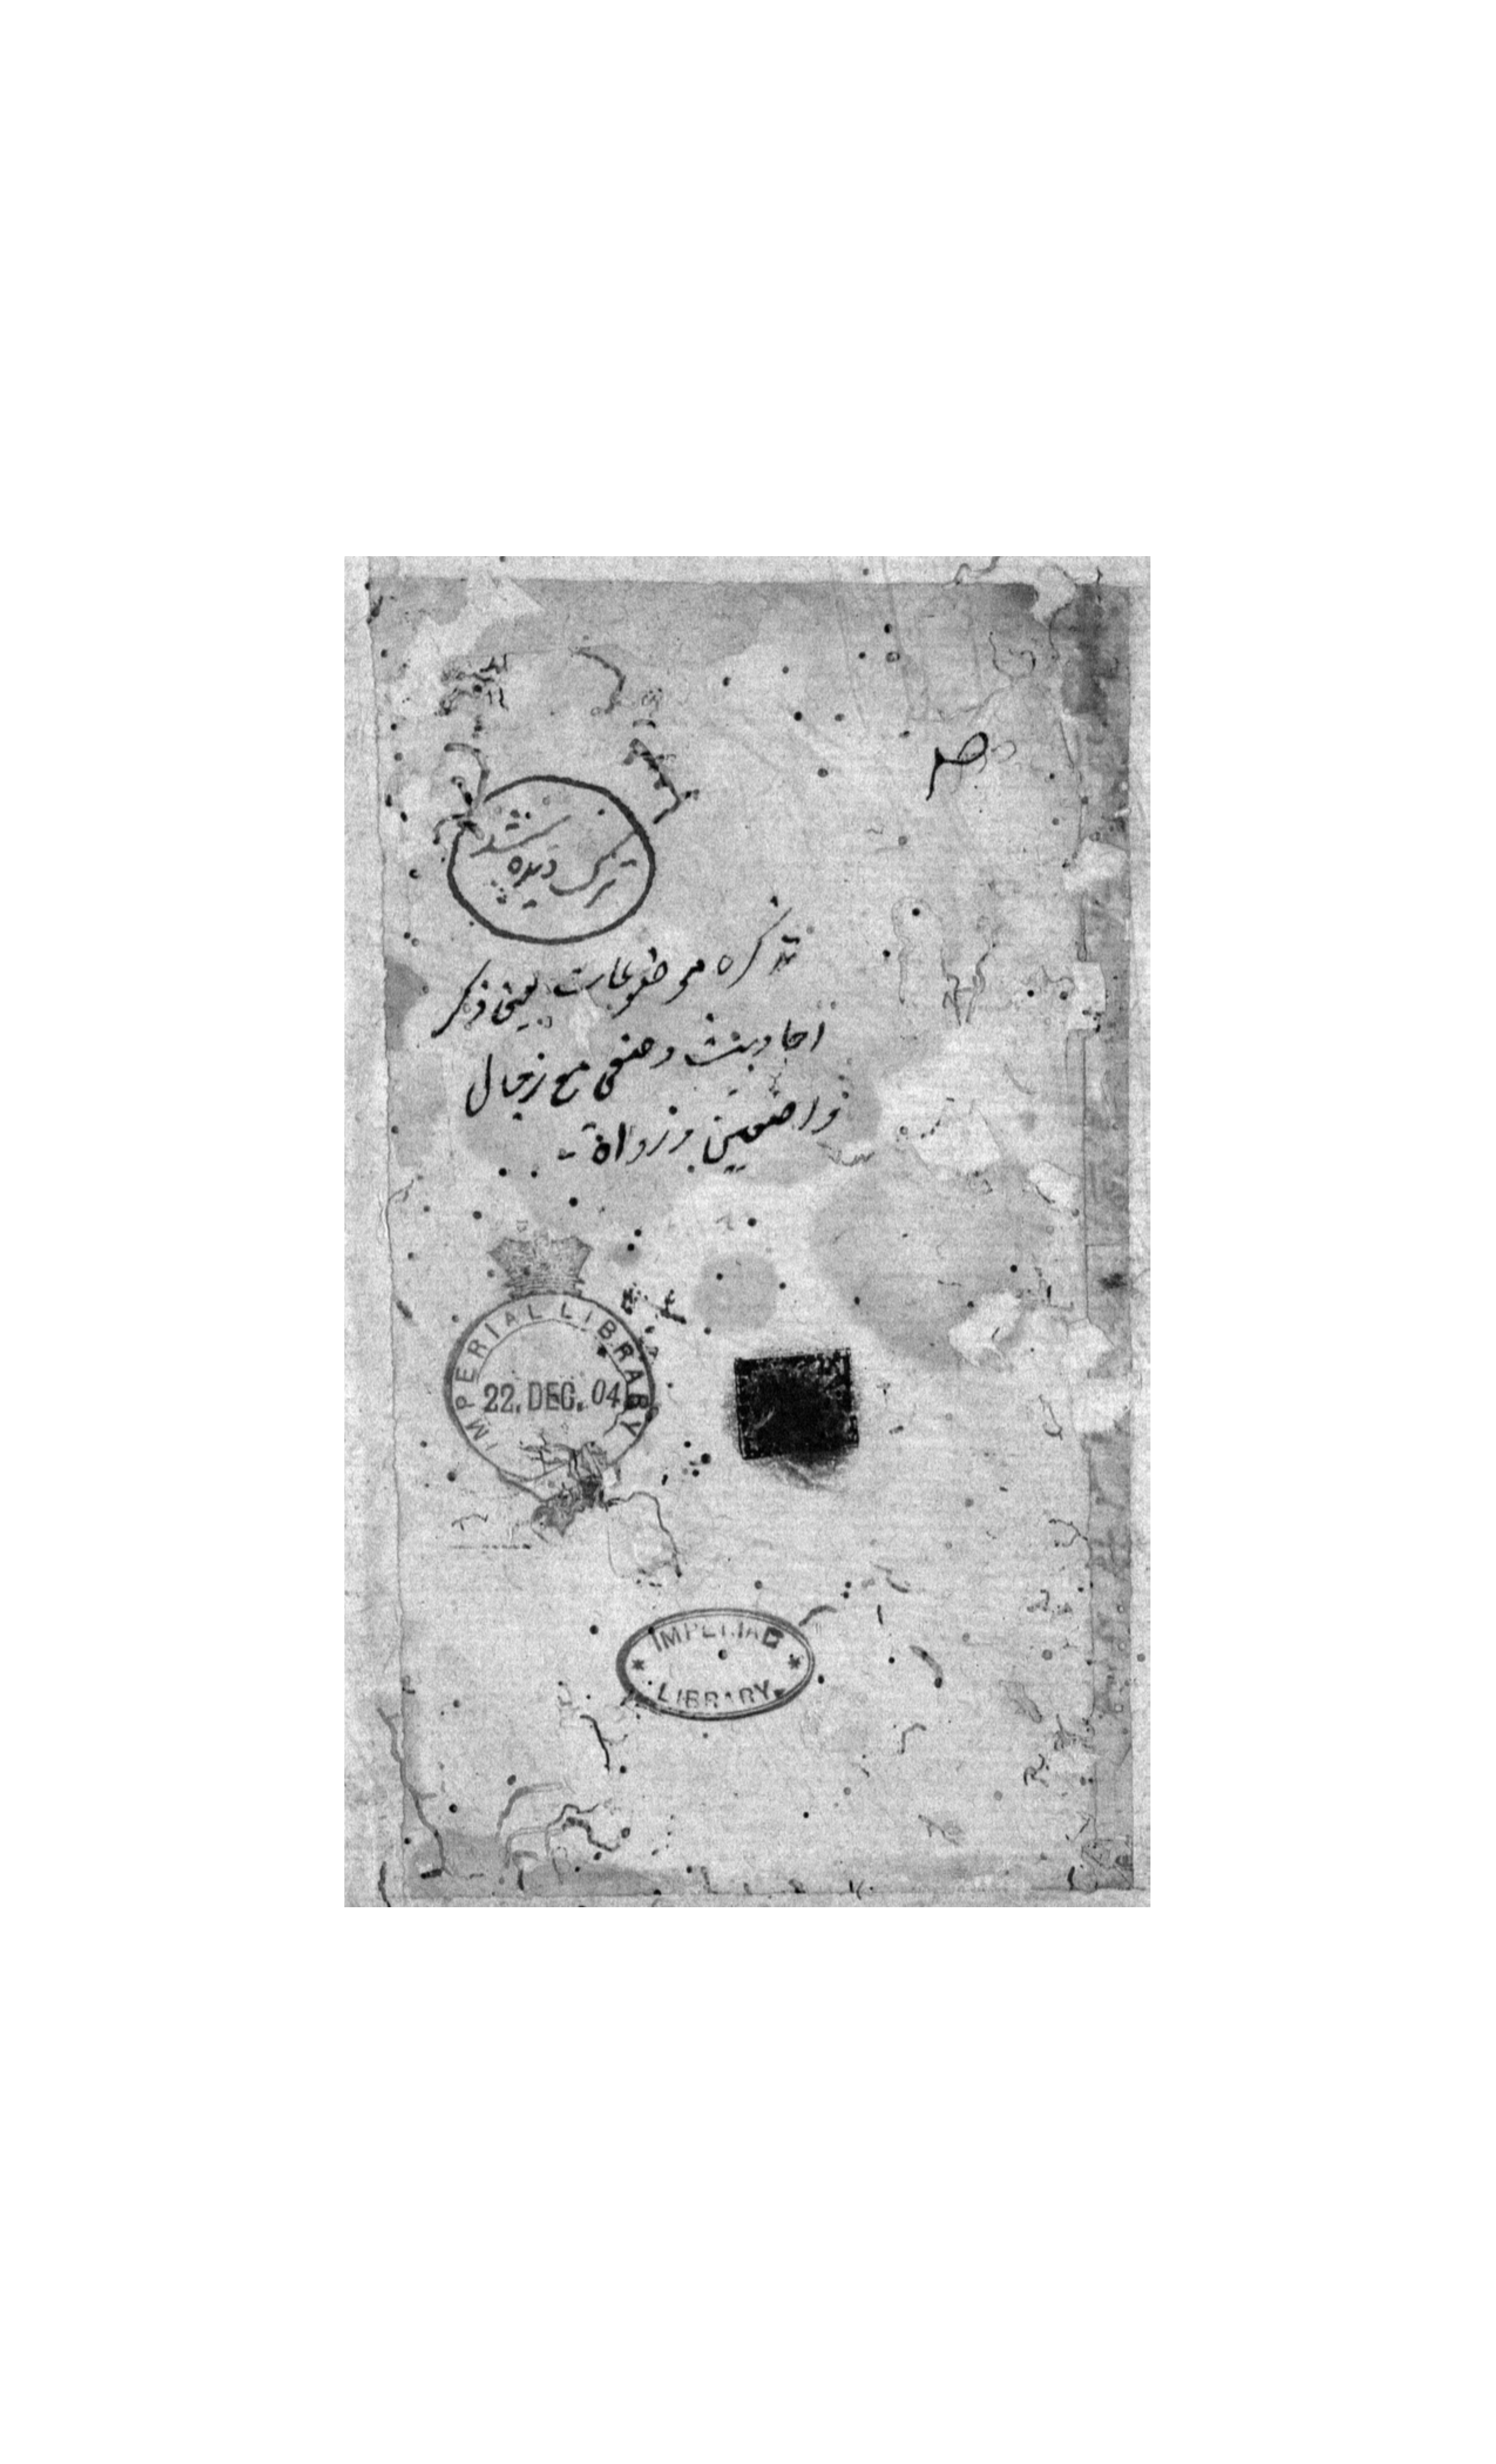 صـ
دیده شد
تذکره موضوعات یعنی ذکر
احادیث وضعی مع رجال
واضعین و رواة
IMPERIAL LIBRARY
22. DEC. 04
IMPERIAL
LIBRARY